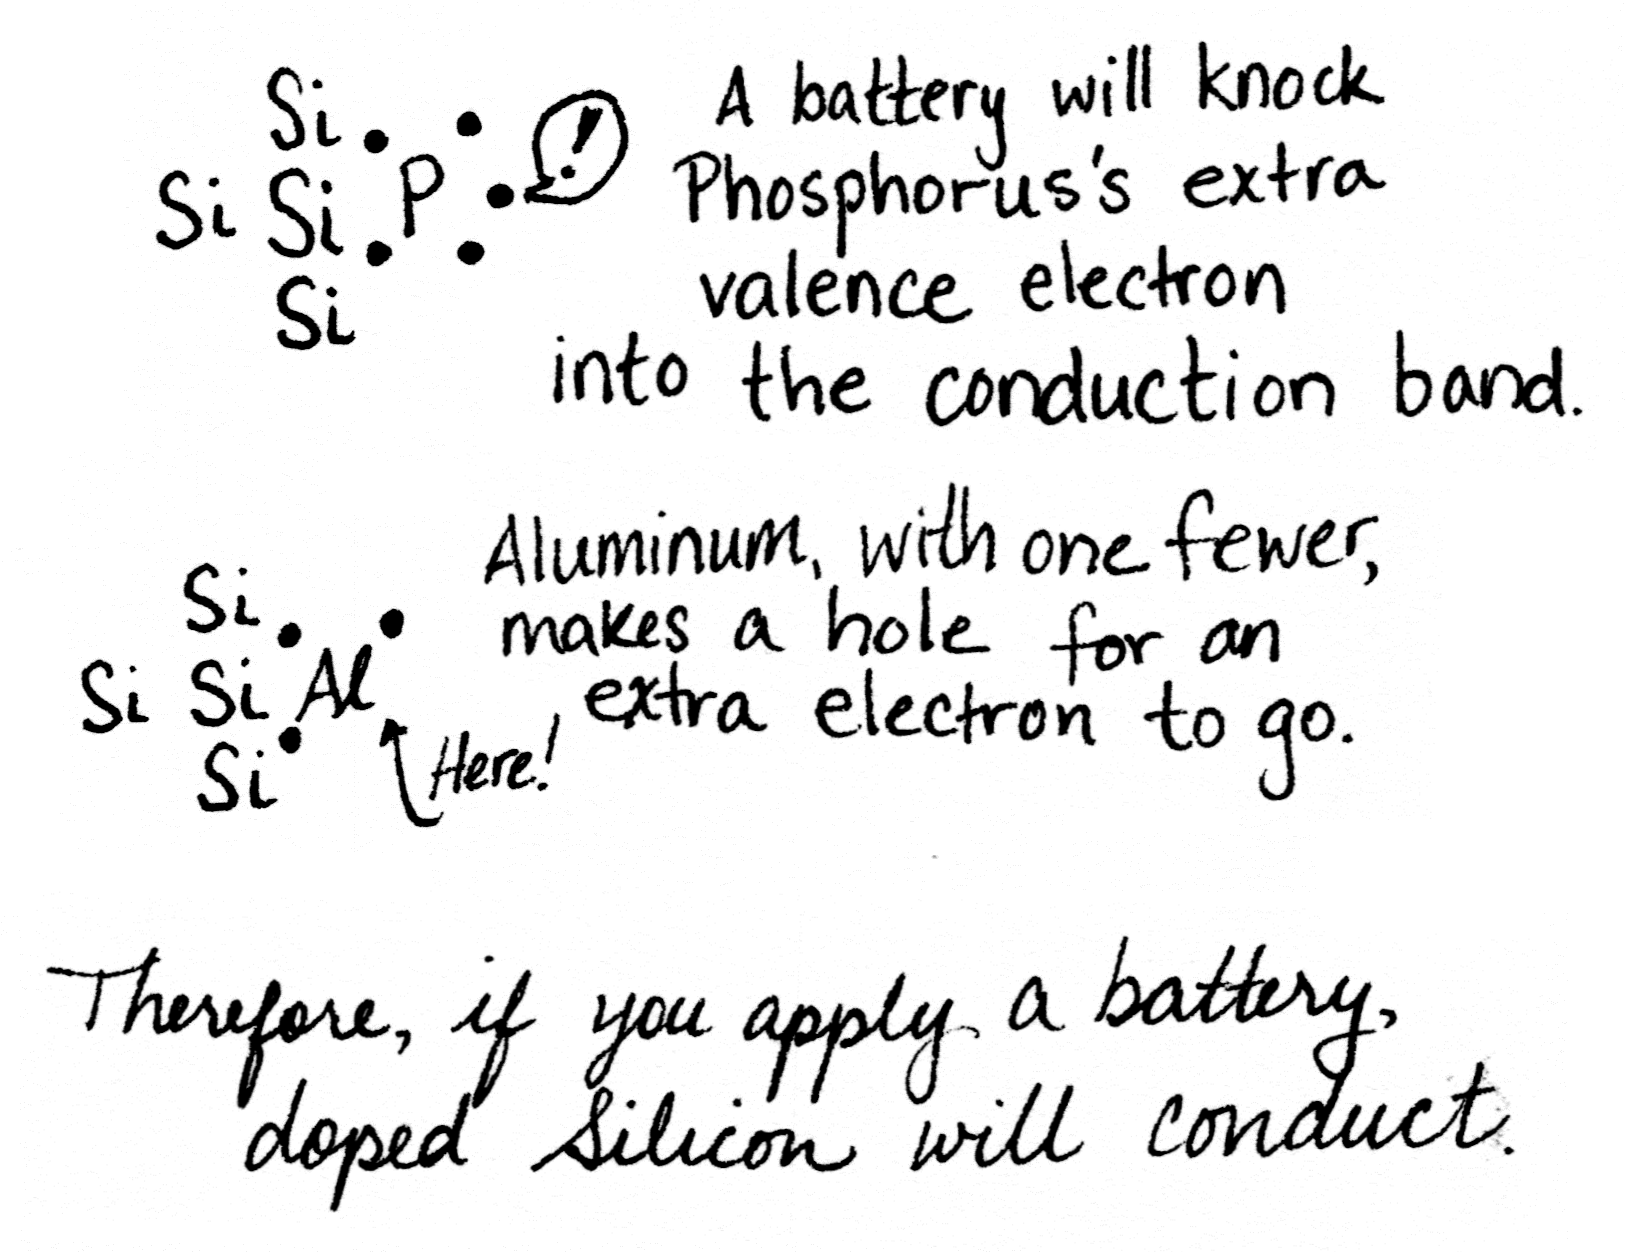 Si
Si Si P !
Si
A battery will knock
Phosphorus's extra
valence electron
into the conduction band.
Si
Si Si Al
Si
Here!
Aluminum, with one fewer,
makes a hole for an
extra electron to go.
Therefore, if you apply a battery,
doped Silicon will conduct.